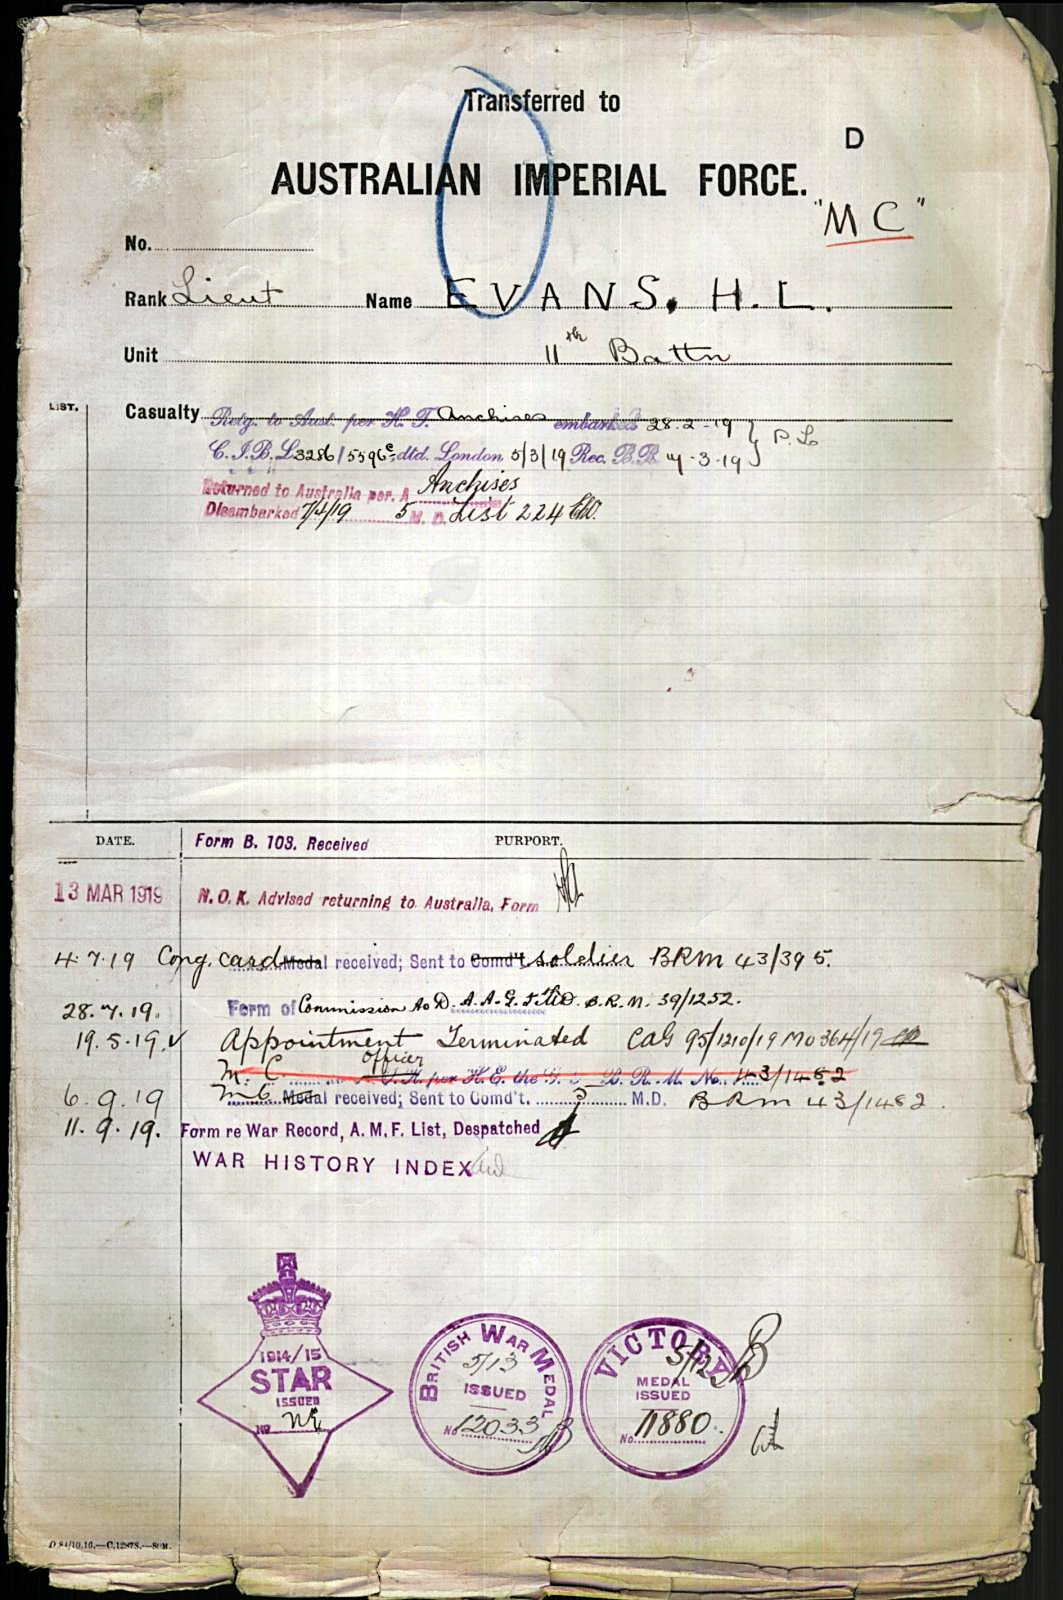 Transferred to
D
AUSTRALIAN IMPERIAL FORCE.
"MC"
No.
Rank Lieut Name EVANS, H.L.
Unit 11th Battn
LIST.
Casualty Retg. to Aust. per H.T. Anchises embarked 28.2-19
C.I.B.L 3286/5596 dtd. London 5/3/19 Rec. B.R. 7-3-19
Returned to Australia per. A Anchises
Disembarked 7/4/19 5 M.D. List 224
DATE. Form B. 103. Received PURPORT.
13 MAR 1919 N.O.K. Advised returning to Australia, Form
4.7.19 Cong. card Medal received; Sent to Comd't soldier BRM 43/395.
28.7.19. Form of Commission to D.A.A.G. B.R.M. 39/1252.
19.5.19. Appointment Terminated CAG 95/1210/19 MO 364/19
officer
M.C. per H.E. the B.R.M. No. 43/1482
6.9.19 MC Medal received; Sent to Comd't. 5 M.D. BRM 43/1482.
11.9.19. Form re War Record, A.M.F. List, Despatched
WAR HISTORY INDEX
1914/15
STAR
ISSUED
No NE
BRITISH WAR MEDAL
5/13
ISSUED
No 12033
VICTORY
5/12
MEDAL
ISSUED
No. 11880.
D.84/10.16.—C.12878.—50M.